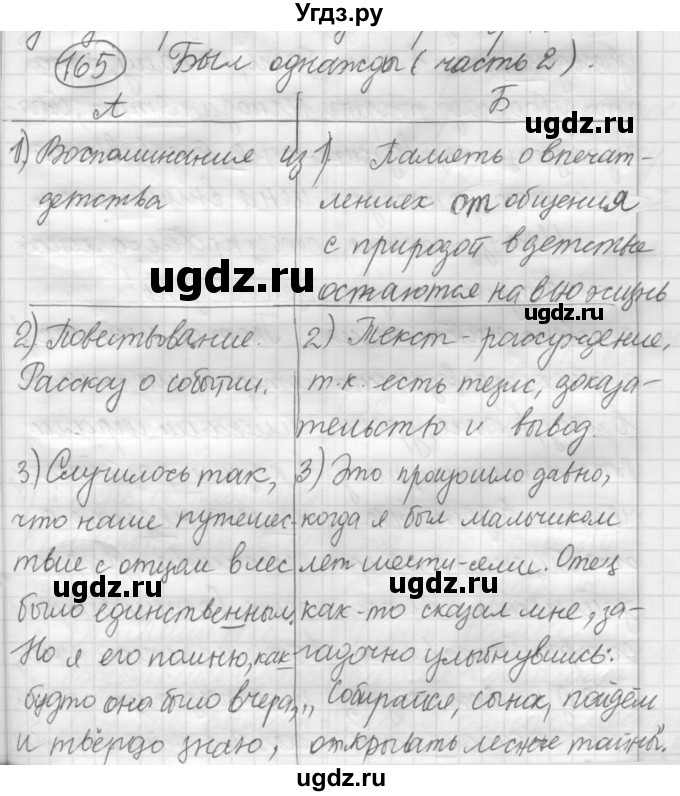 Угдз.ру
165 Был однажды (часть 2).
А
Б
1) Воспоминание из
детства
1) Память о впечат-
лениях от общения
с природой в детстве
остаются на всю жизнь
2) Повествование.
Рассказ о событии.
2) Текст - рассуждение,
т.к. есть тезис, доказа-
тельство и вывод.
3) Случилось так,
что наше путешес-
твие с отцом в лес
было единственным.
Но я его помню, как
будто оно было вчера,
и твёрдо знаю,
3) Это произошло давно,
когда я был мальчиком
лет шести-семи. Отец
как-то сказал мне, за-
гадочно улыбнувшись:
"Собирайся, сынок, пойдём
открывать лесные тайны".
ugdz.ru
ugdz.ru
ugdz.ru
ugdz.ru
ugdz.ru
ugdz.ru
ugdz.ru